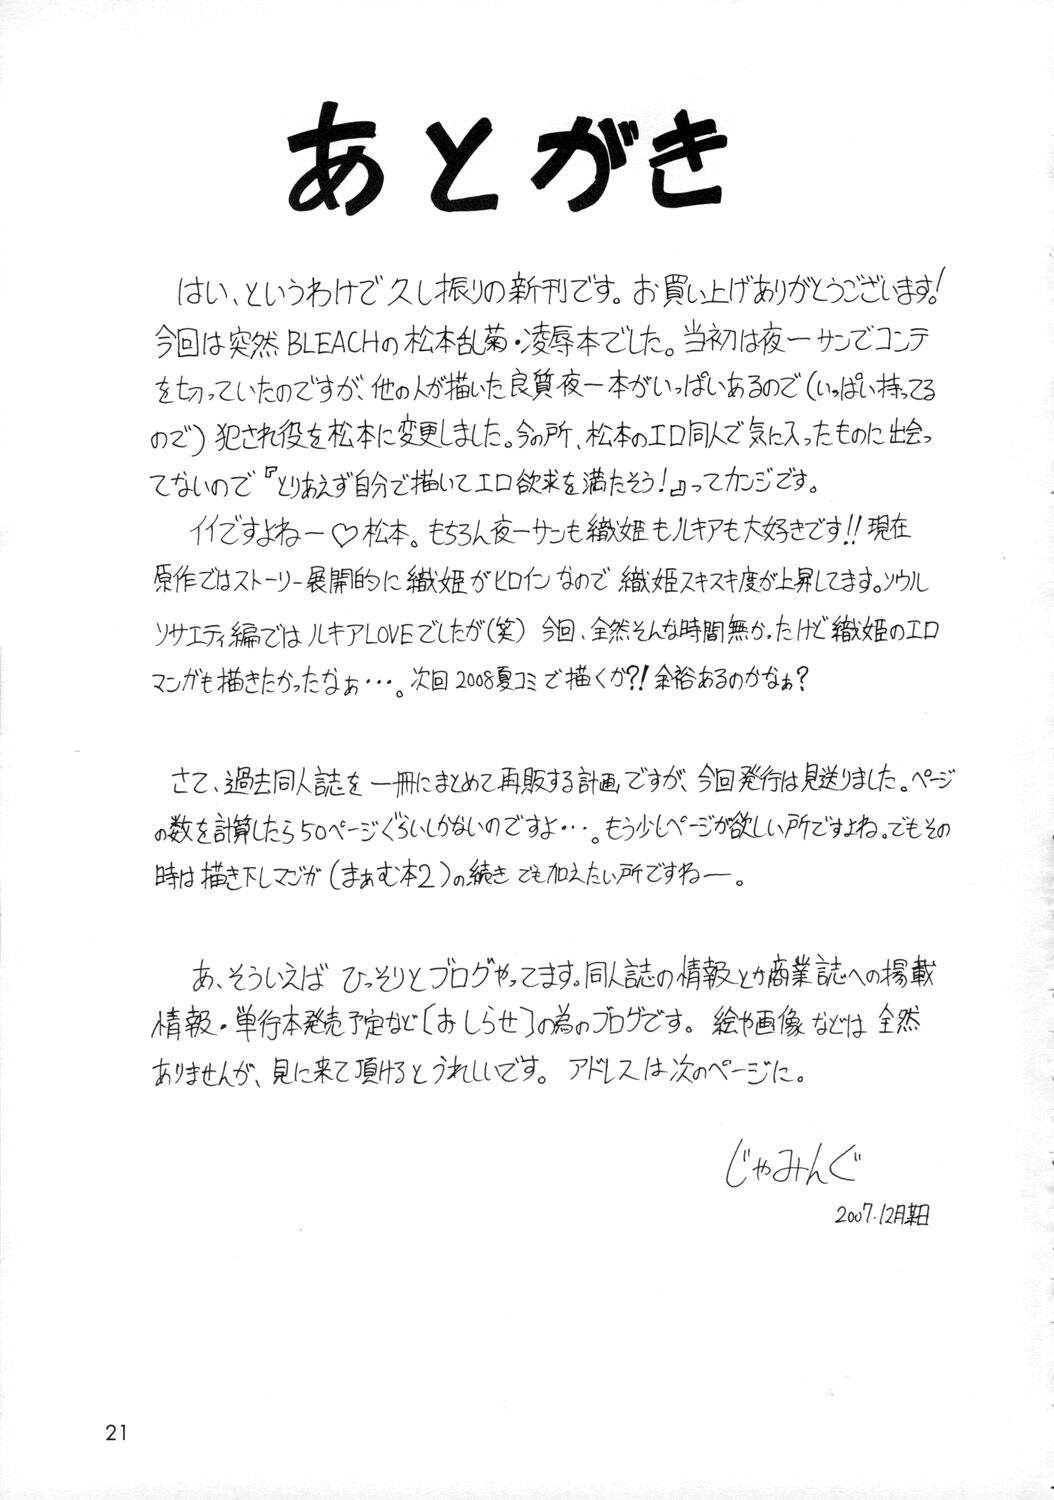 あとがき
はい、というわけで久し振りの新刊です。お買い上げありがとうございます!
今回は突然BLEACHの松本乱菊・凌辱本でした。当初は夜一サンでコンテ
を切っていたのですが、他の人が描いた良質夜一本がいっぱいあるので(いっぱい持ってる
ので)犯され役を松本に変更しました。今の所、松本のエロ同人で気に入ったものに出会っ
てないので『とりあえず自分で描いてエロ欲求を満たそう!』ってカンジです。
イイですよねー♡松本。もちろん夜一サンも織姫もルキアも大好きです!!現在
原作ではストーリー展開的に織姫がヒロインなので織姫スキスキ度が上昇してます。ソウル
ソサエティ編ではルキアLOVEでしたが(笑)今回、全然そんな時間無かったけど織姫のエロ
マンガも描きたかったなぁ・・・。次回2008夏コミで描くか?!余裕あるのかなぁ?
さて、過去同人誌を一冊にまとめて再販する計画ですが、今回発行は見送りました。ページ
の数を計算したら50ページぐらいしかないのですよ・・・。もう少しページが欲しい所ですよね。でもその
時は描き下しマンガ(まぁむ本2)の続きでも加えたい所ですねー。
あ、そういえばひっそりとブログやってます。同人誌の情報とか商業誌への掲載
情報・単行本発売予定など[おしらせ]の為のブログです。絵や画像などは全然
ありませんが、見に来て頂けるとうれしいです。アドレスは次のページに。
じゃみんぐ
2007.12月某日
21